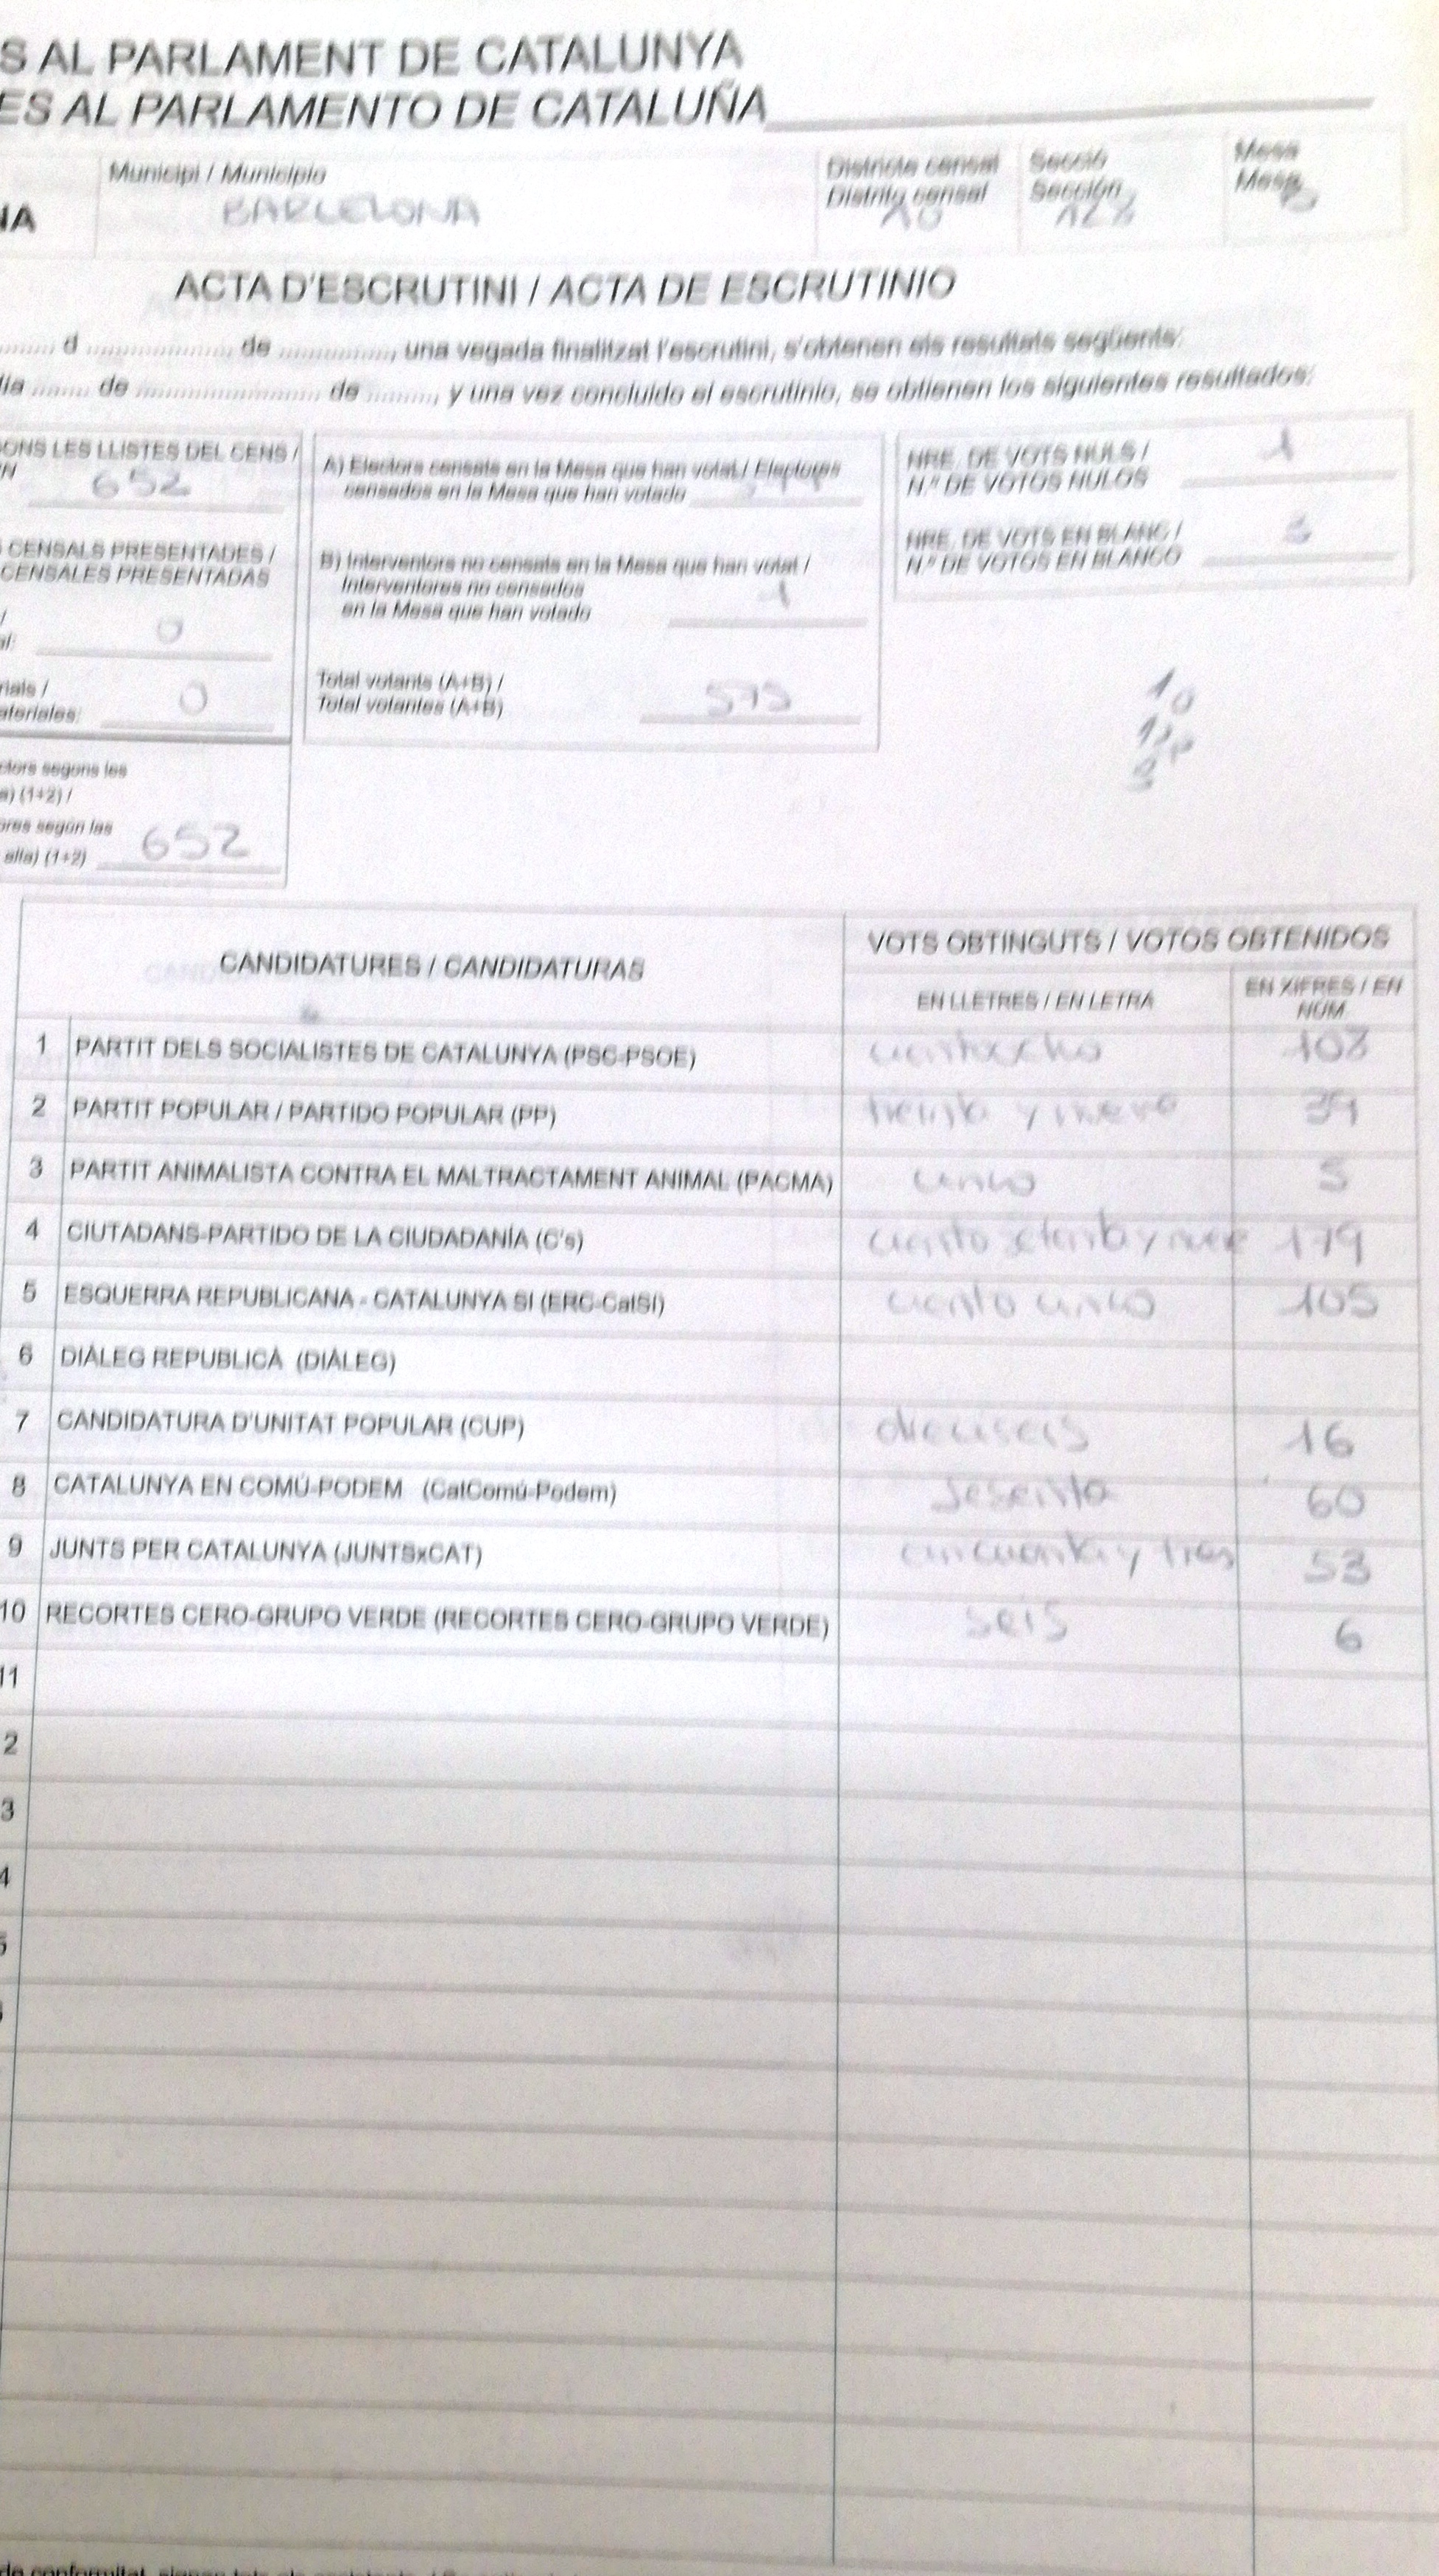 S AL PARLAMENT DE CATALUNYA
ES AL PARLAMENTO DE CATALUÑA
Municipi / Municipio
BARCELONA
Districte censal
Distrito censal
10
Secció
Sección
128
Mesa
Mesa
NA
ACTA D'ESCRUTINI / ACTA DE ESCRUTINIO
........ d ...................... de ................., una vegada finalitzat l'escrutini, s'obtenen els resultats següents:
día ........ de ............................ de ........., y una vez concluido el escrutinio, se obtienen los siguientes resultados:
ONS LES LLISTES DEL CENS /
N 652
CENSALS PRESENTADES /
CENSALES PRESENTADAS
/
al: 0
rials /
ateriales: 0
ctors segons les
a) (1+2) /
ores según las
alta) (1+2) 652
A) Electors censats en la Mesa que han votat / Electores
censados en la Mesa que han votado
B) Interventors no censats en la Mesa que han votat /
Interventores no censados
en la Mesa que han votado 1
Total votants (A+B) /
Total votantes (A+B) 575
NRE. DE VOTS NULS /
N.º DE VOTOS NULOS 1
NRE. DE VOTS EN BLANC /
N.º DE VOTOS EN BLANCO 3
10
CANDIDATURES / CANDIDATURAS
VOTS OBTINGUTS / VOTOS OBTENIDOS
EN LLETRES / EN LETRA
EN XIFRES / EN
NÚM.
1 PARTIT DELS SOCIALISTES DE CATALUNYA (PSC-PSOE) 108
2 PARTIT POPULAR / PARTIDO POPULAR (PP) treinta y nueve 39
3 PARTIT ANIMALISTA CONTRA EL MALTRACTAMENT ANIMAL (PACMA) cinco 5
4 CIUTADANS-PARTIDO DE LA CIUDADANÍA (C's) ciento setenta y nueve 179
5 ESQUERRA REPUBLICANA - CATALUNYA SÍ (ERC-CatSÍ) ciento cinco 105
6 DIÀLEG REPUBLICÀ (DIÀLEG)
7 CANDIDATURA D'UNITAT POPULAR (CUP) dieciseis 16
8 CATALUNYA EN COMÚ-PODEM (CatComú-Podem) sesenta 60
9 JUNTS PER CATALUNYA (JUNTSxCAT) cincuenta y tres 53
10 RECORTES CERO-GRUPO VERDE (RECORTES CERO-GRUPO VERDE) seis 6
11
2
3
4
5